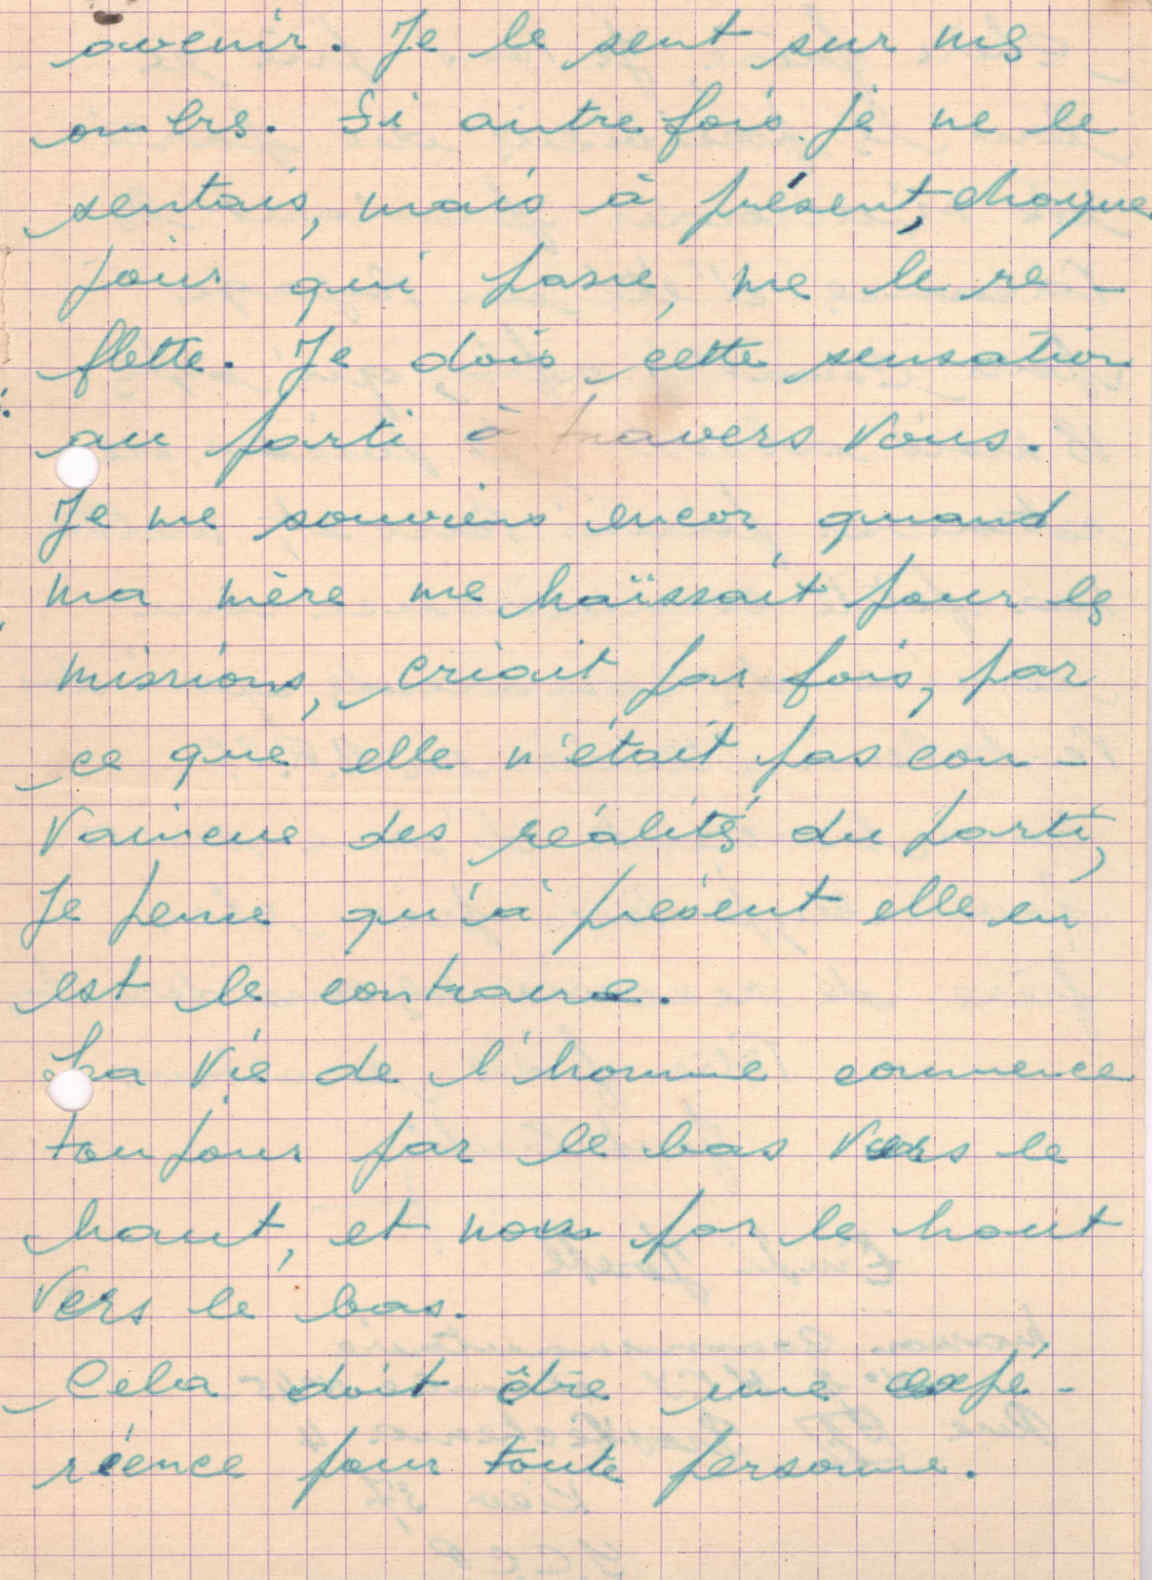 avenir. Je le sent sur mes
ombres. Si autre fois je ne le
sentais, mais à présent, chaque
jour qui passe, me le re-
flette. Je dois cette sensation
au parti à travers vous.
Je me souviens encor, quand
ma mère me haïssait pour les
missions, criait par fois, par
ce que elle n'était pas con-
vaincue des réalités du parti,
Je pense qu'à présent elle en
est le contraire.
La vie de l'homme commence
toujours par le bas vers le
haut, et nous par le haut
vers le bas.
Cela doit être une expé-
rience pour toute personne.